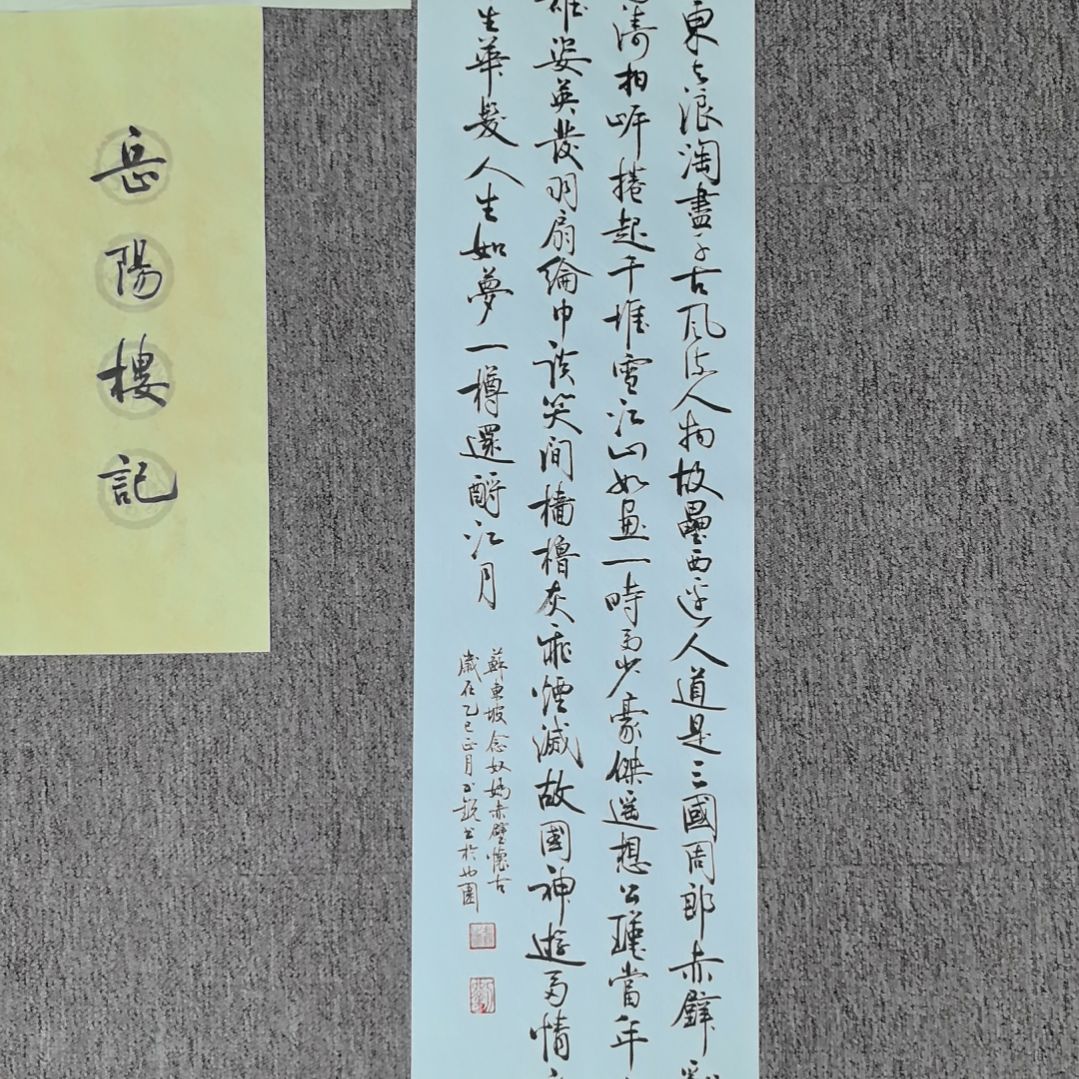 東去浪淘盡千古風流人物故壘西邊人道是三國周郎赤壁
濤拍岸捲起千堆雪江山如畫一時多少豪傑遥想公瑾當年
雄姿英發羽扇綸巾談笑间檣櫓灰飛煙滅故國神遊多情
生華髮人生如夢一樽還酹江月
蘇東坡念奴嬌赤壁懷古
歲在乙巳正月書於園
岳陽樓記